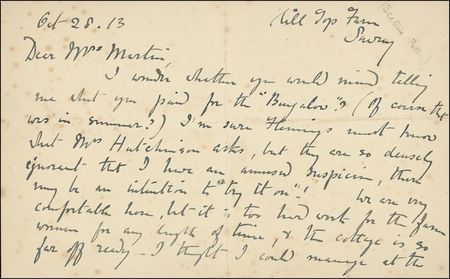 Oct 28. 13
Hill Top Farm
Sawrey
(Beatrix Potter)
Dear Mrs Martin,
I wonder whether you would mind telling
me what you paid for the "Bungalow"? (Of course that
was in summer?) I'm sure Flemings must know
what Mrs Hutchinson asks, but they are so densely
ignorant that I have an amused suspicion there
may be an intention to "try it on"! We are very
comfortable here, but it is too hard work for the farm
woman for any length of time, & the cottage is so
far off ready - I thought I could manage at the